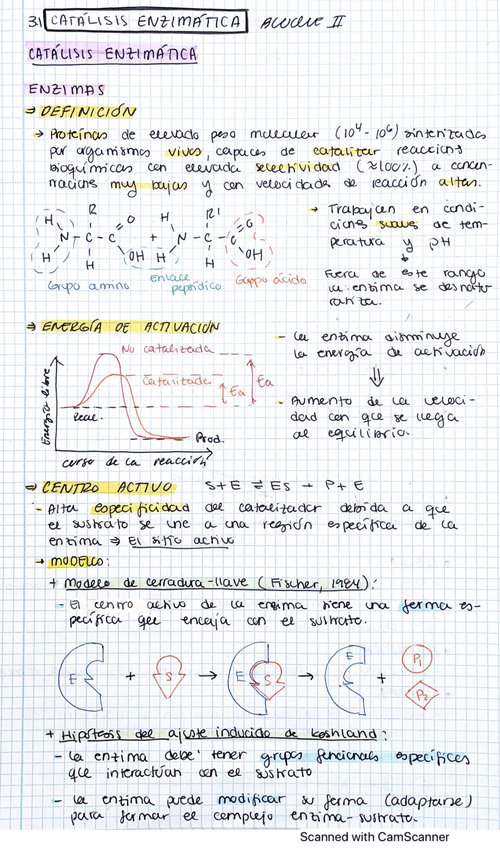 3.1 CATÁLISIS ENZIMÁTICA BLOQUE II
CATÁLISIS ENZIMÁTICA
ENZIMAS
⇒ DEFINICIÓN
→ Proteínas de elevado peso molecular (10⁴ - 10⁶) sintetizadas
por organismos vivos, capaces de catalizar reacciones
bioquímicas con elevada selectividad (≈100%) a concen-
traciones muy bajas y con velocidades de reacción altas.
→ Trabajan en condi-
ciones suaves de tem-
peratura y pH
Fuera de este rango
la enzima se desnatu
raliza.
H R O H R' O
N - C - C + N - C - C
H H OH H H OH
Grupo amino Enlace peptídico Grupo ácido
⇒ ENERGÍA DE ACTIVACIÓN
Energía libre
No catalizada
Catalizada
Ea
Ea
React.
Prod.
curso de la reacción
- La enzima disminuye
la energía de activación
⇓
- Aumento de la veloci-
dad con que se llega
al equilibrio.
⇒ CENTRO ACTIVO S+E ⇌ ES → P+E
- Alta especificidad del catalizador debida a que
el sustrato se une a una región específica de la
enzima ⇒ El sitio activo
→ MODELOS:
+ Modelo de cerradura-llave (Fischer, 1984):
- El centro activo de la enzima tiene una forma es-
pecífica que encaja con el sustrato.
E + S → E S → E + P₁
P₂
+ Hipótesis del ajuste inducido de Koshland:
- La enzima debe tener grupos funcionales específicos
que interactúan con el sustrato
- La enzima puede modificar su forma (adaptarse)
para formar el complejo enzima-sustrato.
Scanned with CamScanner